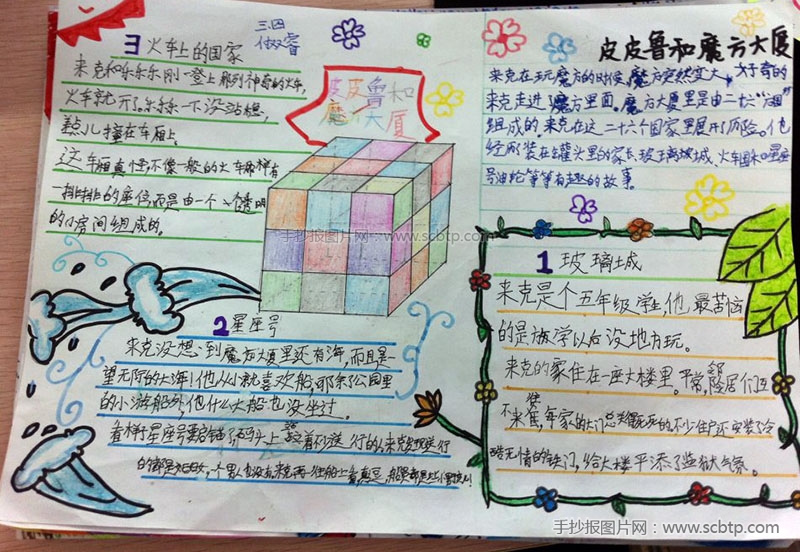 3 火车上的国家
来克和乐乐乐刚一登上那列神奇的火车,
火车就开了乐乐一下没站稳,
差点儿撞在车厢上。
这车厢真怪,不像一般的火车那样有
一排排的座位,而是由一个个透明
的小房间组成的。
三.四
皮皮鲁和
魔方大厦
皮皮鲁和魔方大厦
来克在玩魔方的时候,魔方突然变大,好奇的
来克走进了魔方里面。魔方大厦里是由二十六“国”
组成的,来克在这二十六个国家里展开了历险。他
经历装在罐头里的家长 玻璃城 火车国和星座
号油轮等等有趣的故事。
手抄报图片网:www.scbtp.com
1 玻璃城
来克是个五年级学生,他最苦恼
的是放学以后没地方玩。
来克的家住在一座大楼里。平常,邻居们互
不来往,每家的大门总是死死的不少住户还安装了冷
酷无情的铁门,给大楼平添了监狱气氛。
2 星座号
来克没想到魔方大厦里还有海,而且是一
望无际的大海!他从小就喜欢船,可除了公园里
的小游船外,他什么大船也没坐过。
看样子星座号要启锚了,码头上站着不少送行的,来克发现送行
的都是
手抄报图片网:www.scbtp.com